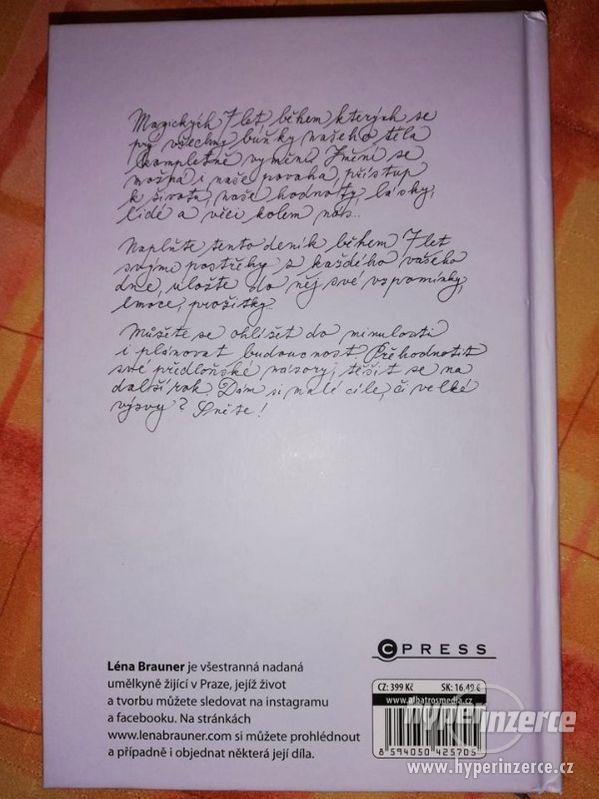 Magických 7 let během kterých se
prý všechny buňky našeho těla
kompletně vymění. Změní se
možná i naše povaha, přístup
k životu, naše hodnoty, lásky,
lidé a věci kolem nás..
Naplňte tento deník během 7 let
svými postřehy z každého vašeho
dne, uložte do něj své vzpomínky,
emoce, prožitky.
Můžete se ohlížet do minulosti
i plánovat budoucnost. Přehodnotit
své předloňské názory, těšit se na
další rok. Dám si malé cíle, či velké
výzvy? Sněte!
CPRESS
Léna Brauner je všestranná nadaná
umělkyně žijící v Praze, jejíž život
a tvorbu můžete sledovat na instagramu
a facebooku. Na stránkách
www.lenabrauner.com si můžete prohlédnout
a případně i objednat některá její díla.
CZ: 399 Kč SK: 16,49 €
www.albatrosmedia.cz
8 594050 425705
hyperinzerce
www.hyperinzerce.cz